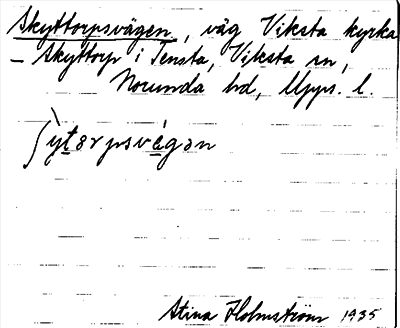 Skyttorpsvägen, väg Viksta kyrka
– Skyttorp i Tensta, Viksta sn,
Norunda hd, Upps. l.
ʃy̍tərpsvägən
Stina Holmström 1935